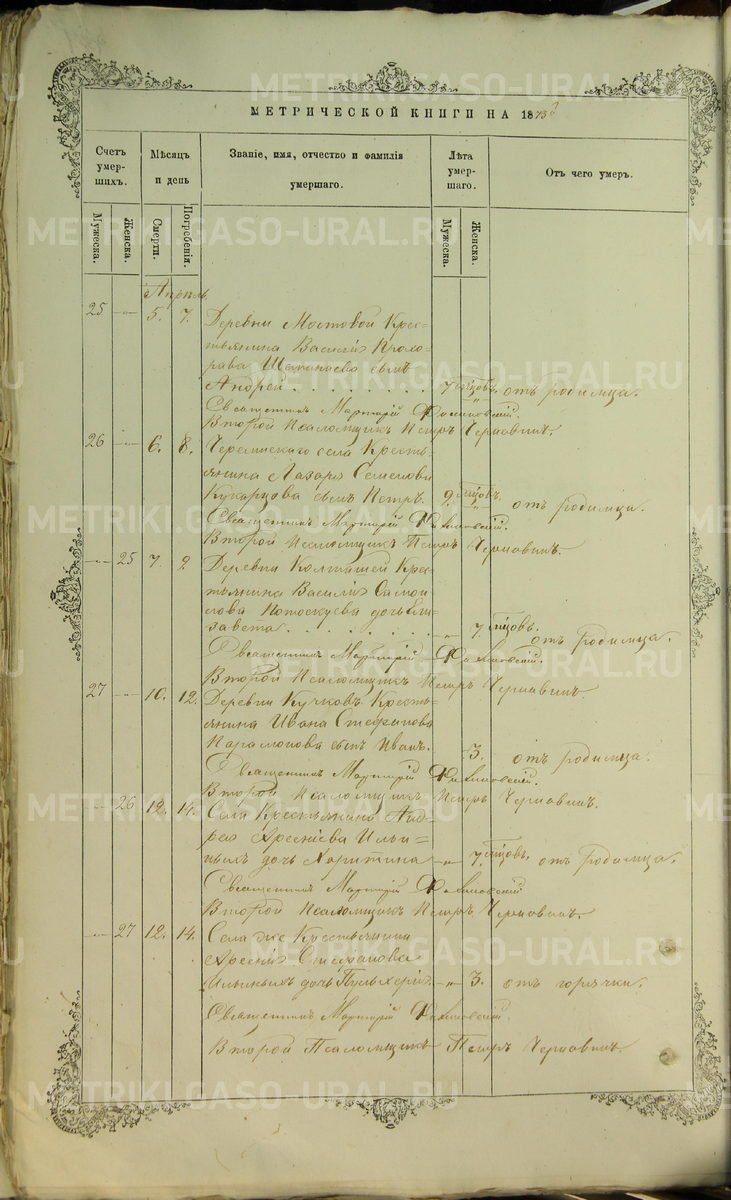 МЕТРИЧЕСКОЙ КНИГИ НА 1873й
Счетъ умер-шихъ.
Мѣсяцъ и день
Званіе, имя, отчество и фамилія умершаго.
Лѣта умер-шаго.
Отъ чего умеръ.
Мужеска.
Женска.
Смерти.
Погребенія.
Мужеска.
Женска.
Апрѣль
25 -„- 5. 7. Деревни Мостовой Крес-
тьянина Василія Прохо-
рова сынъ
Андрей . . . . . . . . 7 отъ родимца.
Священникъ Мартирій
Второй Псаломщикъ Петръ Чернавинъ.
26 -„- 6. 8. Черемискаго села Кресть-
янина Лазаря Семенова
Кукарцова сынъ Петръ. 9 отъ родимца.
Священникъ Мартирій
Второй Псаломщикъ Петръ Чернавинъ.
-„- 25 7. 9 Деревни Колташей Крес-
тьянина Василія Самой-
лова Потоскуева дочь Ели-
завета . . . . . . . -„- 7 отъ родимца.
Священникъ Мартирій
Второй Псаломщикъ Петръ Чернавинъ.
27 -„- 10. 12. Деревни Кучковъ Кресть-
янина Ивана Стефанова
Парамонова сынъ Иванъ. 3. отъ родимца.
Священникъ Мартирій
Второй Псаломщикъ Петръ Чернавинъ.
-„- 26 12. 14. Села Крестьянина Анд-
рея Арсеніева Ильи-
ныхъ дочь Харитина -„- 7. отъ родимца.
Священникъ Мартирій
Второй Псаломщикъ Петръ Чернавинъ.
-„- 27 12. 14. Села же Крестьянина
Арсенія Стефанова
Ильиныхъ дочь Пульхерія -„- 3. отъ горячки.
Священникъ Мартирій
Второй Псаломщикъ Петръ Чернавинъ.
METRIKI.GASO-URAL.RU